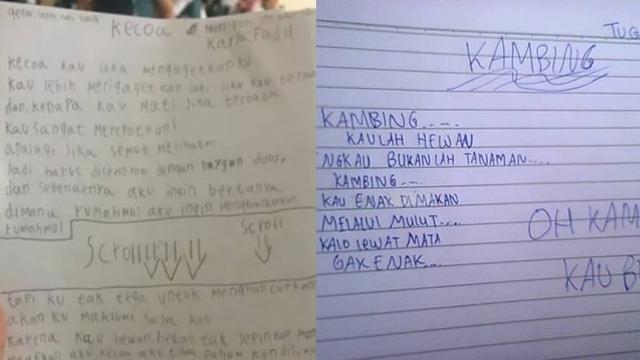 Kecoa
Karya Fadil
Kecoa kau suka mengagetkanku
Kau lebih mengagetkan lagi jika kau
dan kenapa kau mati jika terbalik
Kau sangat merepotkan!
apalagi jika semut melihatmu
Jadi harus disemprot dengan baygon dulu,
dan sebenarnya aku ingin bertanya
dimana rumahmu? aku ingin menghancurkan
rumahmu!
Scroll
Scrollllll
tapi ku tak tega untuk menghancurkan
akan ku maklumi saja kau
Karena kau hewan, hewan tak sepintar
aku
TUG
KAMBING
KAMBING....
KAULAH HEWAN
NGKAU BUKANLAH TANAMAN....
KAMBING....
KAU ENAK DIMAKAN
MELALUI MULUT....
KALO LEWAT MATA
GAK ENAK...
OH KAM
KAU B